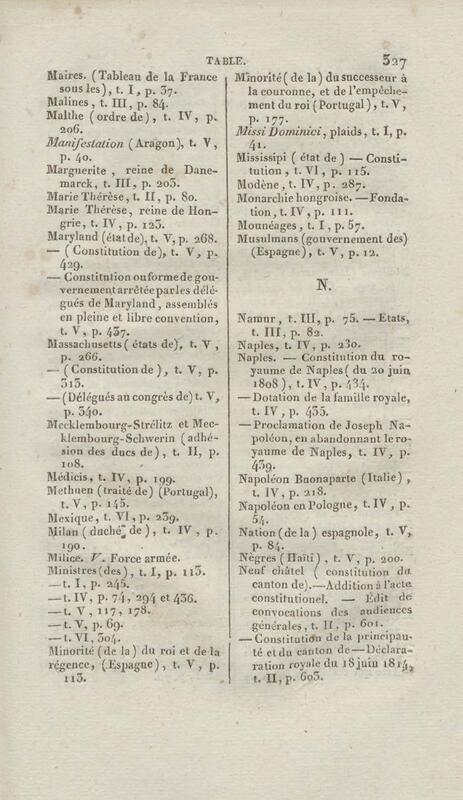 TABLE. 527
Maires. (Tableau de la France
sous les), t. I, p. 37.
Malines, t. III, p. 84.
Malthe (ordre de), t. IV, p.
206.
Manifestation (Aragon), t. V,
p. 40.
Marguerite, reine de Dane-
marck, t. III, p. 203.
Marie Thérèse, t. II, p. 80.
Marie Thérèse, reine de Hon-
grie, t. IV, p. 123.
Maryland (état de), t. V, p. 268.
— (Constitution de), t. V, p.
429.
— Constitution ou forme de gou-
vernement arrêtée par les délé-
gués de Maryland, assemblés
en pleine et libre convention,
t. V, p. 437.
Massachusetts (états de), t. V,
p. 266.
— (Constitution de), t. V, p.
313.
— (Délégués au congrès de) t. V,
p. 340.
Mecklembourg-Strélitz et Mec-
klembourg-Schwerin (adhé-
sion des ducs de), t. II, p.
108.
Médicis, t. IV, p. 199.
Methuen (traité de) (Portugal),
t. V, p. 145.
Mexique, t. VI, p. 239.
Milan (duché de), t. IV, p.
190.
Milice. V. Force armée.
Ministres (des), t. I, p. 113.
— t. I, p. 245.
— t. IV, p. 74, 294 et 436.
— t. V, 117, 178.
— t. V, p. 69.
— t. VI, 304.
Minorité (de la) du roi et de la
régence, (Espagne), t. V, p.
113.
Minorité (de la) du successeur à
la couronne, et de l'empêche-
ment du roi (Portugal), t. V,
p. 177.
Missi Dominici, plaids, t. I, p.
41.
Mississipi (état de) — Consti-
tution, t. VI, p. 115.
Modène, t. IV, p. 287.
Monarchie hongroise. — Fonda-
tion, t. IV, p. 111.
Mounéages, t. I, p. 57.
Musulmans (gouvernement des)
(Espagne), t. V, p. 12.
N.
Namur, t. III, p. 75. — Etats,
t. III, p. 82.
Naples, t. IV, p. 230.
Naples. — Constitution du ro-
yaume de Naples (du 20 juin
1808), t. IV, p. 434.
— Dotation de la famille royale,
t. IV, p. 435.
— Proclamation de Joseph Na-
poléon, en abandonnant le ro-
yaume de Naples, t. IV, p.
439.
Napoléon Buonaparte (Italie),
t. IV, p. 218.
Napoléon en Pologne, t. IV, p.
54.
Nation (de la) espagnole, t. V,
p. 84.
Nègres (Haïti), t. V, p. 200.
Neuf châtel (constitution du
canton de). — Addition à l'acte
constitutionel. — Edit de
convocations des audiences
générales, t. II, p. 601.
— Constitution de la principau-
té et du canton de — Déclara-
ration royale du 18 juin 1814,
t. II, p. 603.